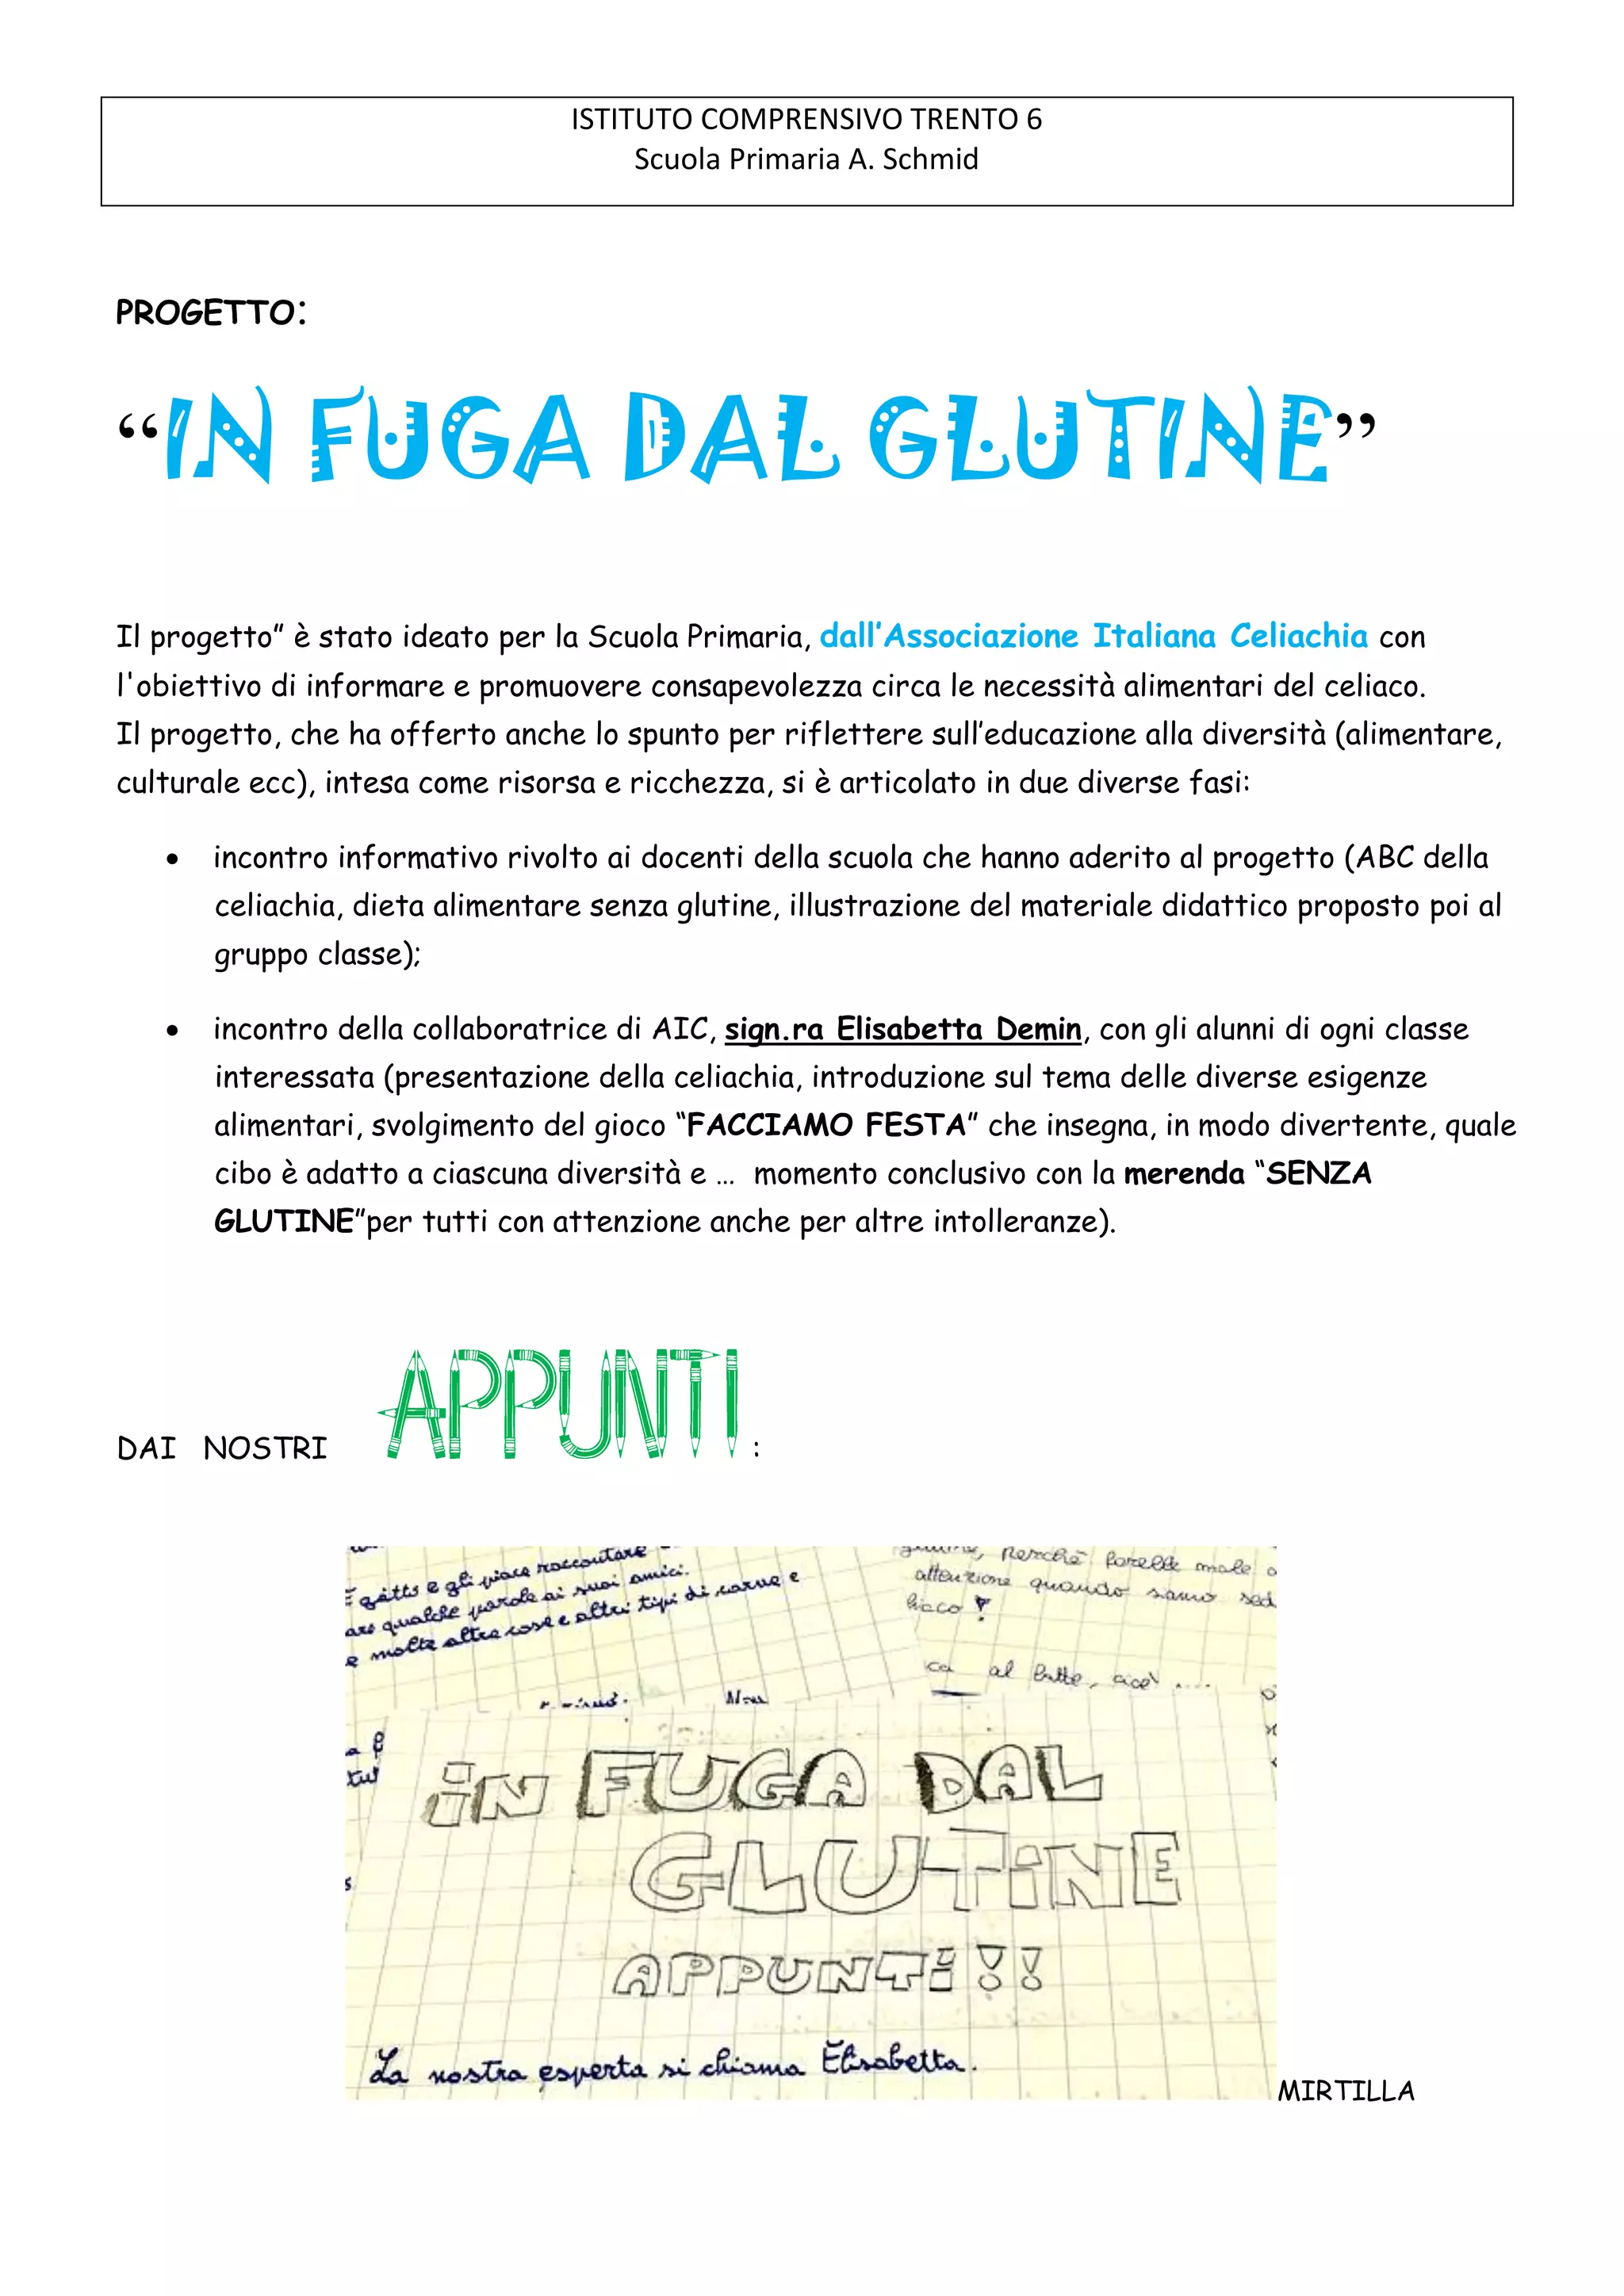 ISTITUTO COMPRENSIVO TRENTO 6
Scuola Primaria A. Schmid
PROGETTO:
“IN FUGA DAL GLUTINE”
Il progetto” è stato ideato per la Scuola Primaria, dall’Associazione Italiana Celiachia con
l'obiettivo di informare e promuovere consapevolezza circa le necessità alimentari del celiaco.
Il progetto, che ha offerto anche lo spunto per riflettere sull’educazione alla diversità (alimentare,
culturale ecc), intesa come risorsa e ricchezza, si è articolato in due diverse fasi:
• incontro informativo rivolto ai docenti della scuola che hanno aderito al progetto (ABC della
celiachia, dieta alimentare senza glutine, illustrazione del materiale didattico proposto poi al
gruppo classe);
• incontro della collaboratrice di AIC, sign.ra Elisabetta Demin, con gli alunni di ogni classe
interessata (presentazione della celiachia, introduzione sul tema delle diverse esigenze
alimentari, svolgimento del gioco “FACCIAMO FESTA” che insegna, in modo divertente, quale
cibo è adatto a ciascuna diversità e … momento conclusivo con la merenda “SENZA
GLUTINE”per tutti con attenzione anche per altre intolleranze).
DAI NOSTRI APPUNTI:
Egitto e gli piace raccontare
are qualche parola ai suoi amici.
e molte altre cose e altri tipi di carne e
perchè farebbe male a
attenzione quando siamo sed
liaco!
ca al latte, cioè ....
Non
iN FUGA DAL
GLUTiNE
APPUNTi!!
La nostra esperta si chiama Elisabetta.
MIRTILLA